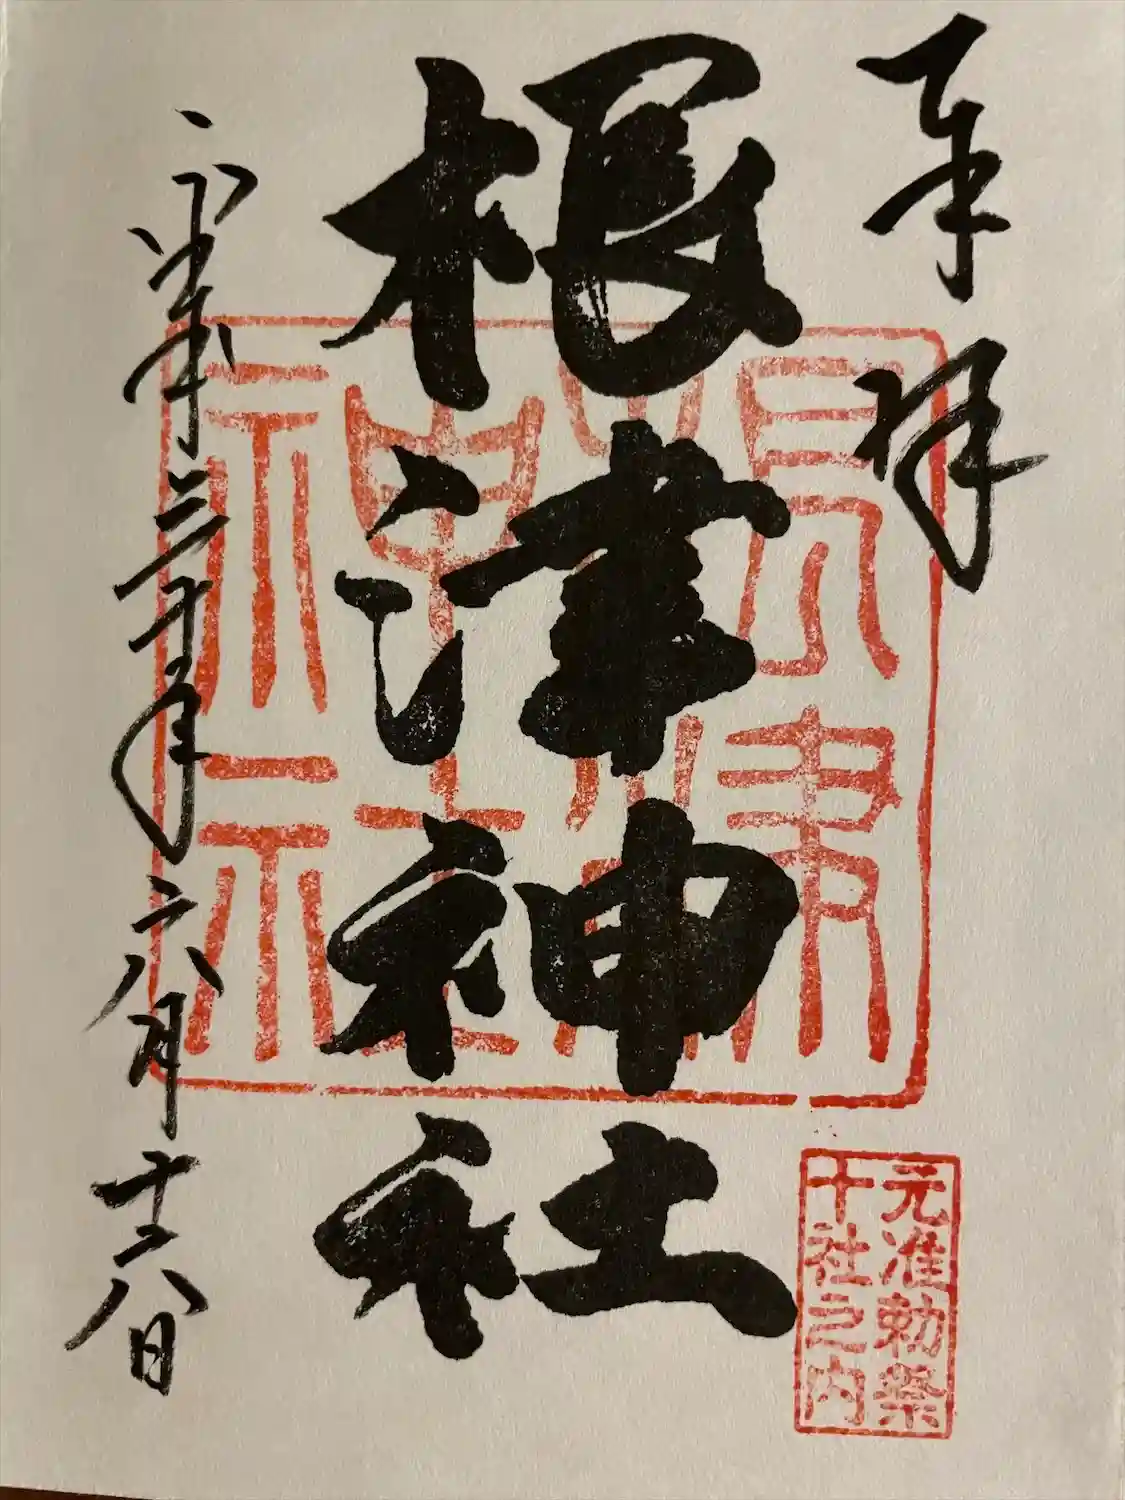 奉拝
元准勅祭
十社之内
根津神社
根津
神社
平成三十年六月十六日